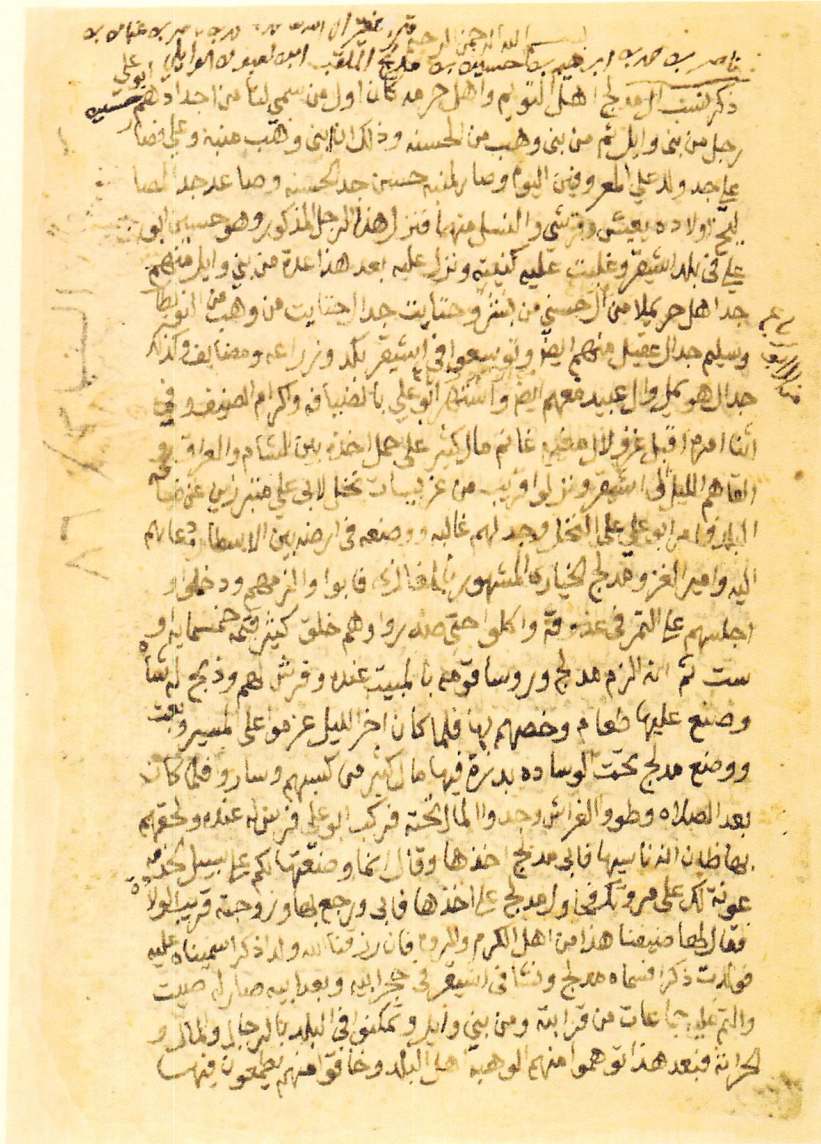 بسم الله الرحمن الرحيم
ناصر بن حمد بن ابرهيم بن حسين بن مدلج الملقب ابن لعبون الوايلي
ذكر نسب ال مدلج اهل التويم واهل حرمه كان اول من سمي لنا من اجدادهم حسين ابو علي
رجل من بني وايل ثم من بني وهب من الحسنه وذلك ان ابني وهب منبه وعلي فصار
علي جد ولد علي المعروفين اليوم وصار لمنبه حسن جد الحسنه وصاعد جد المصا
ليخ اولاده يعيش وقرشي والنسل منهما فنزل هذا الرجل المذكور وهو حسين ابو
علي في بلد اشيقر وغلبت عليه كنيته ونزل عليه بعد هذا عدة من بني وايل منهم
جد اهل حريملا من ال حسني من بشر وحتايت جد ال حتايت من وهب من النويطا
وسليم جد ال عقيل منهم ايض وتوسعوا في اشيقر بلد وزراعه ومضايف وكذلك
جد ال هويمل وال عبيد معهم ايض واشتهر ابو علي بالضيافه واكرام الضيف وفي
اثنا امرهم اقبل غزو لال مغيره غانم مال كثير على حمل اخذوه بين الشام والعراق
القاهم الليل الى اشيقر ونزلوا قريب من غريسات نخل لابي علي متبرزين عن
البلد فامر ابو علي على النخل وجد لهم غالبه ووضعه في ارضه بين الاسطار ودعاهم
اليه وامير الغزو مدلج الخياري المشهور بالمغازي فابوا والزمهم ودخلوا
اجلسهم على التمر في عذوقه واكلوا حتى صدروا وهم خلق كثير قيمة خمسمايه او
ست ثم انه الزم مدلج وروسا قومه بالمبيت عنده وفرش لهم وذبح له شاة
وصنع عليها طعام وخصهم بها فلما كان اخر الليل عزموا على المسير
ووضع مدلج تحت الوساده بدرة فيها مال كثير من كسبهم وساروا فلما كان
بعد الصلاه وطووا الفراش وجدوا المال تحته فركب ابو علي فرس له عنده ولحقهم
بها ظان انه ناسيها فابى مدلج اخذها وقال انما وضعتها لكم على سبيل
عونة لك على مروتك فحاول مدلج على اخذها فابى ورجع بها وزوجته قريب الولاده
فقال لها ضيفنا هذا من اهل الكرم والمروه فان رزقنا الله ولد اذكر اسميناه عليه
فولدت ذكرا فسماه مدلج ونشا في اشيقر في حجر ابيه وبعد ابيه صار له صيت
والتم عليه جماعات من قرابته ومن بني وايل وتمكنوا في البلد بالرجال والمال و
الحراثة فبعد هذا توهموا منهم الوهبة اهل البلد وخافوا منهم يطمعون فيها